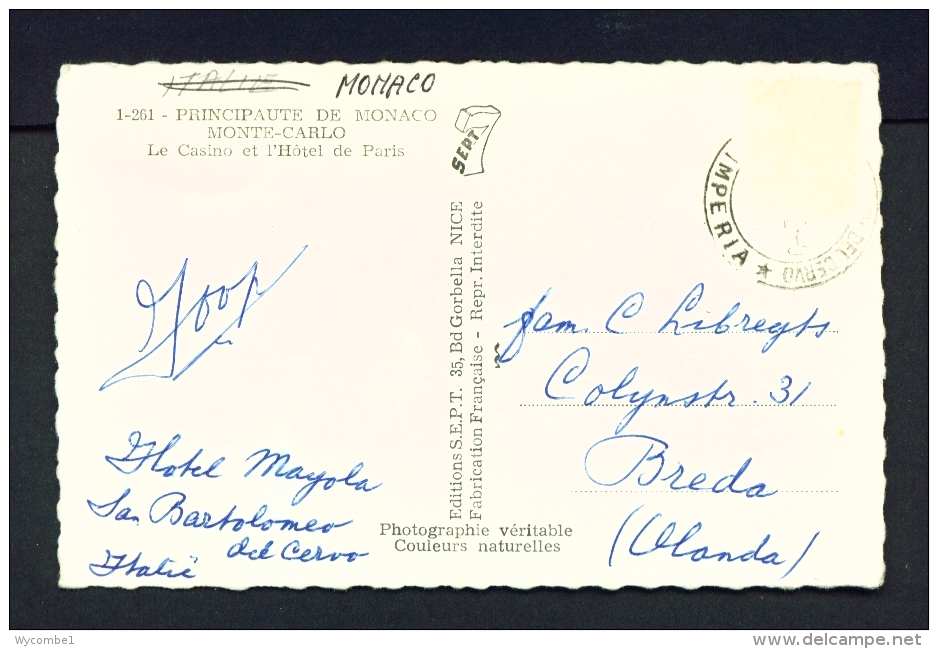 ITALIE MONACO
1-261 - PRINCIPAUTE DE MONACO
MONTE-CARLO
Le Casino et l'Hôtel de Paris
SEPT 7
IMPERIA ★ DEL CERVO
Joop
Hotel Mayola
San Bartolomeo
del Cervo
Italië
Editions S.E.P.T. 35, Bd Gorbella NICE
Fabrication Française - Repr. Interdite
Photographie véritable
Couleurs naturelles
fam. C Libregts
Colynstr. 31
Breda
(Olanda)
Wycombe1
www.delcampe.net